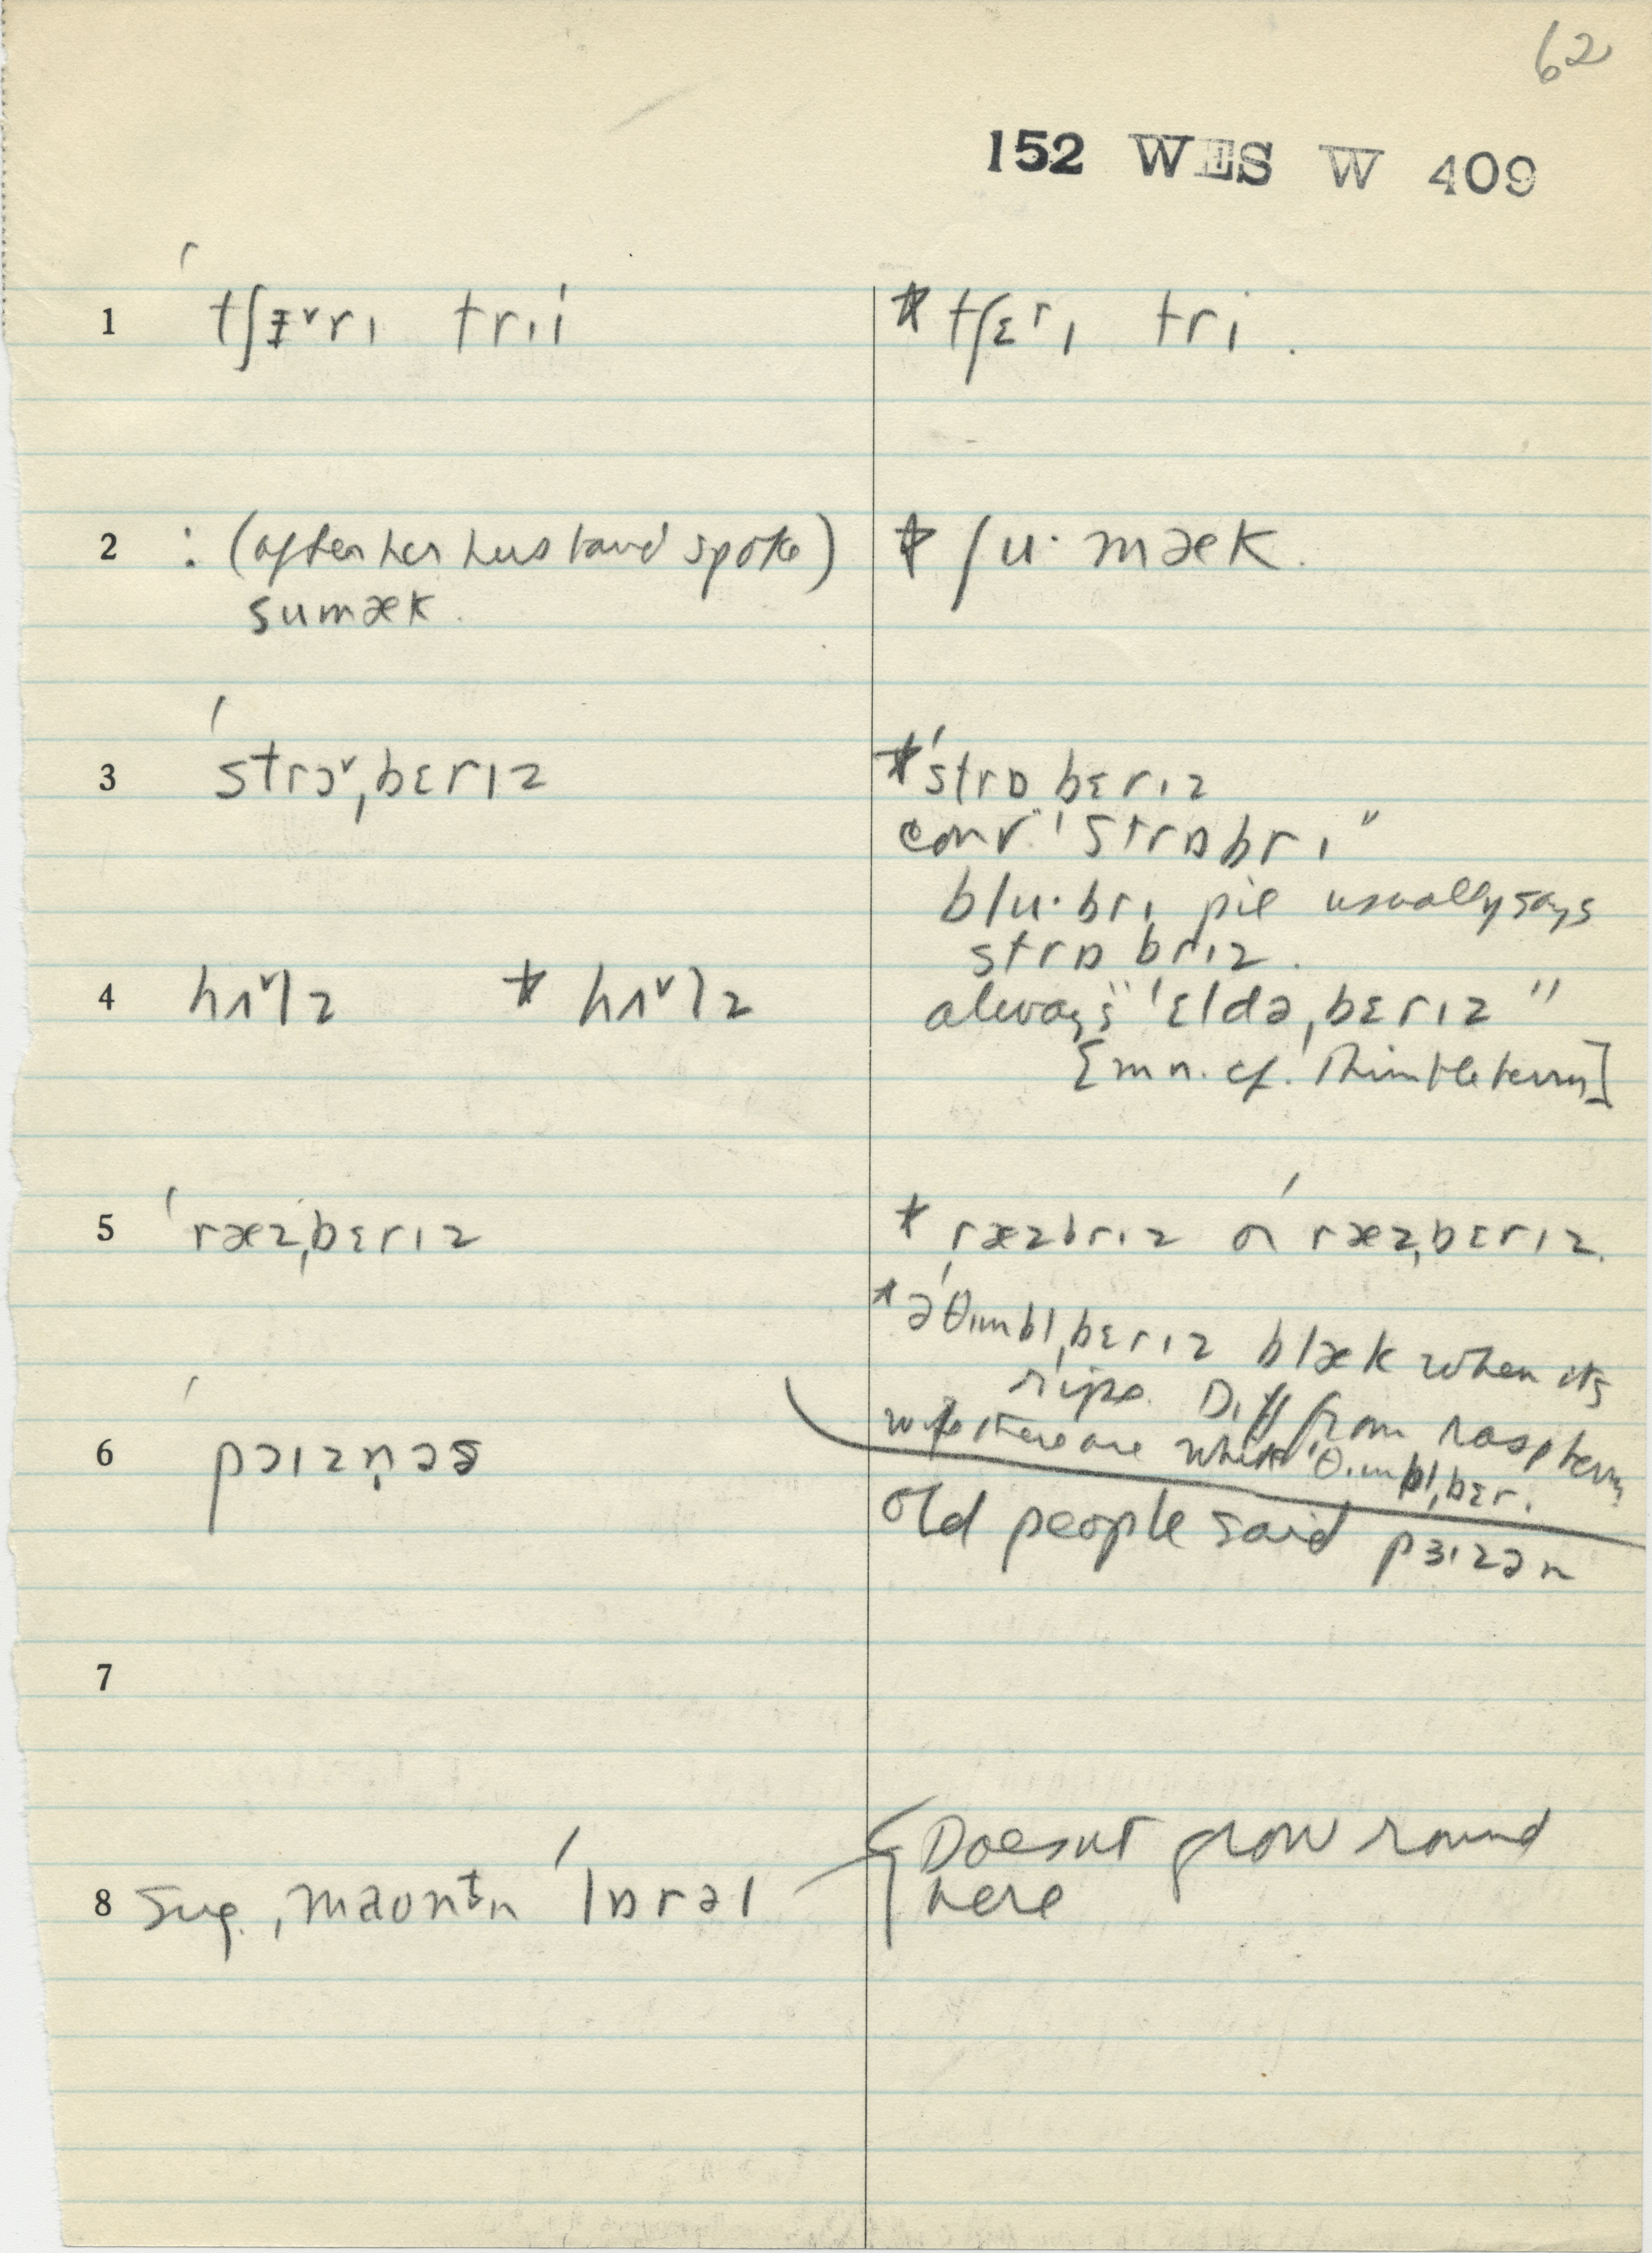 62
152 WES W 409
1 ˈtʃɛ˅rɪ trɪi
* tʃɛrɪ tri.
2 : (after her husband spoke)
sumæk.
* ʃu·mæk.
3 ˈstrɔ˅ˌbɛrɪz
* ˈstrɒbɛrɪz
conv. "ˈstrɒbrɪ"
blu·brɪ pie usually says
strɒbrɪz.
4 hʌ˅lz * hʌ˅lz
always "ˈɛldəˌbɛrɪz"
[m n. cf. Thimbleberry]
5 ˈræzˌbɛrɪz
* ˌræzbrɪz or ˈræzˌbɛrɪz.
* ə ˈθɪmblˌbɛrɪz blæk when its
ripe. Diff from raspberry
wife there are white ˈθɪmblˌbɛr.
6 pɔɪzn̩əs
old people said pɜɪzən
7
8 sug. ˌmaontn ˈlɒrəl
{Doesnt grow round
here